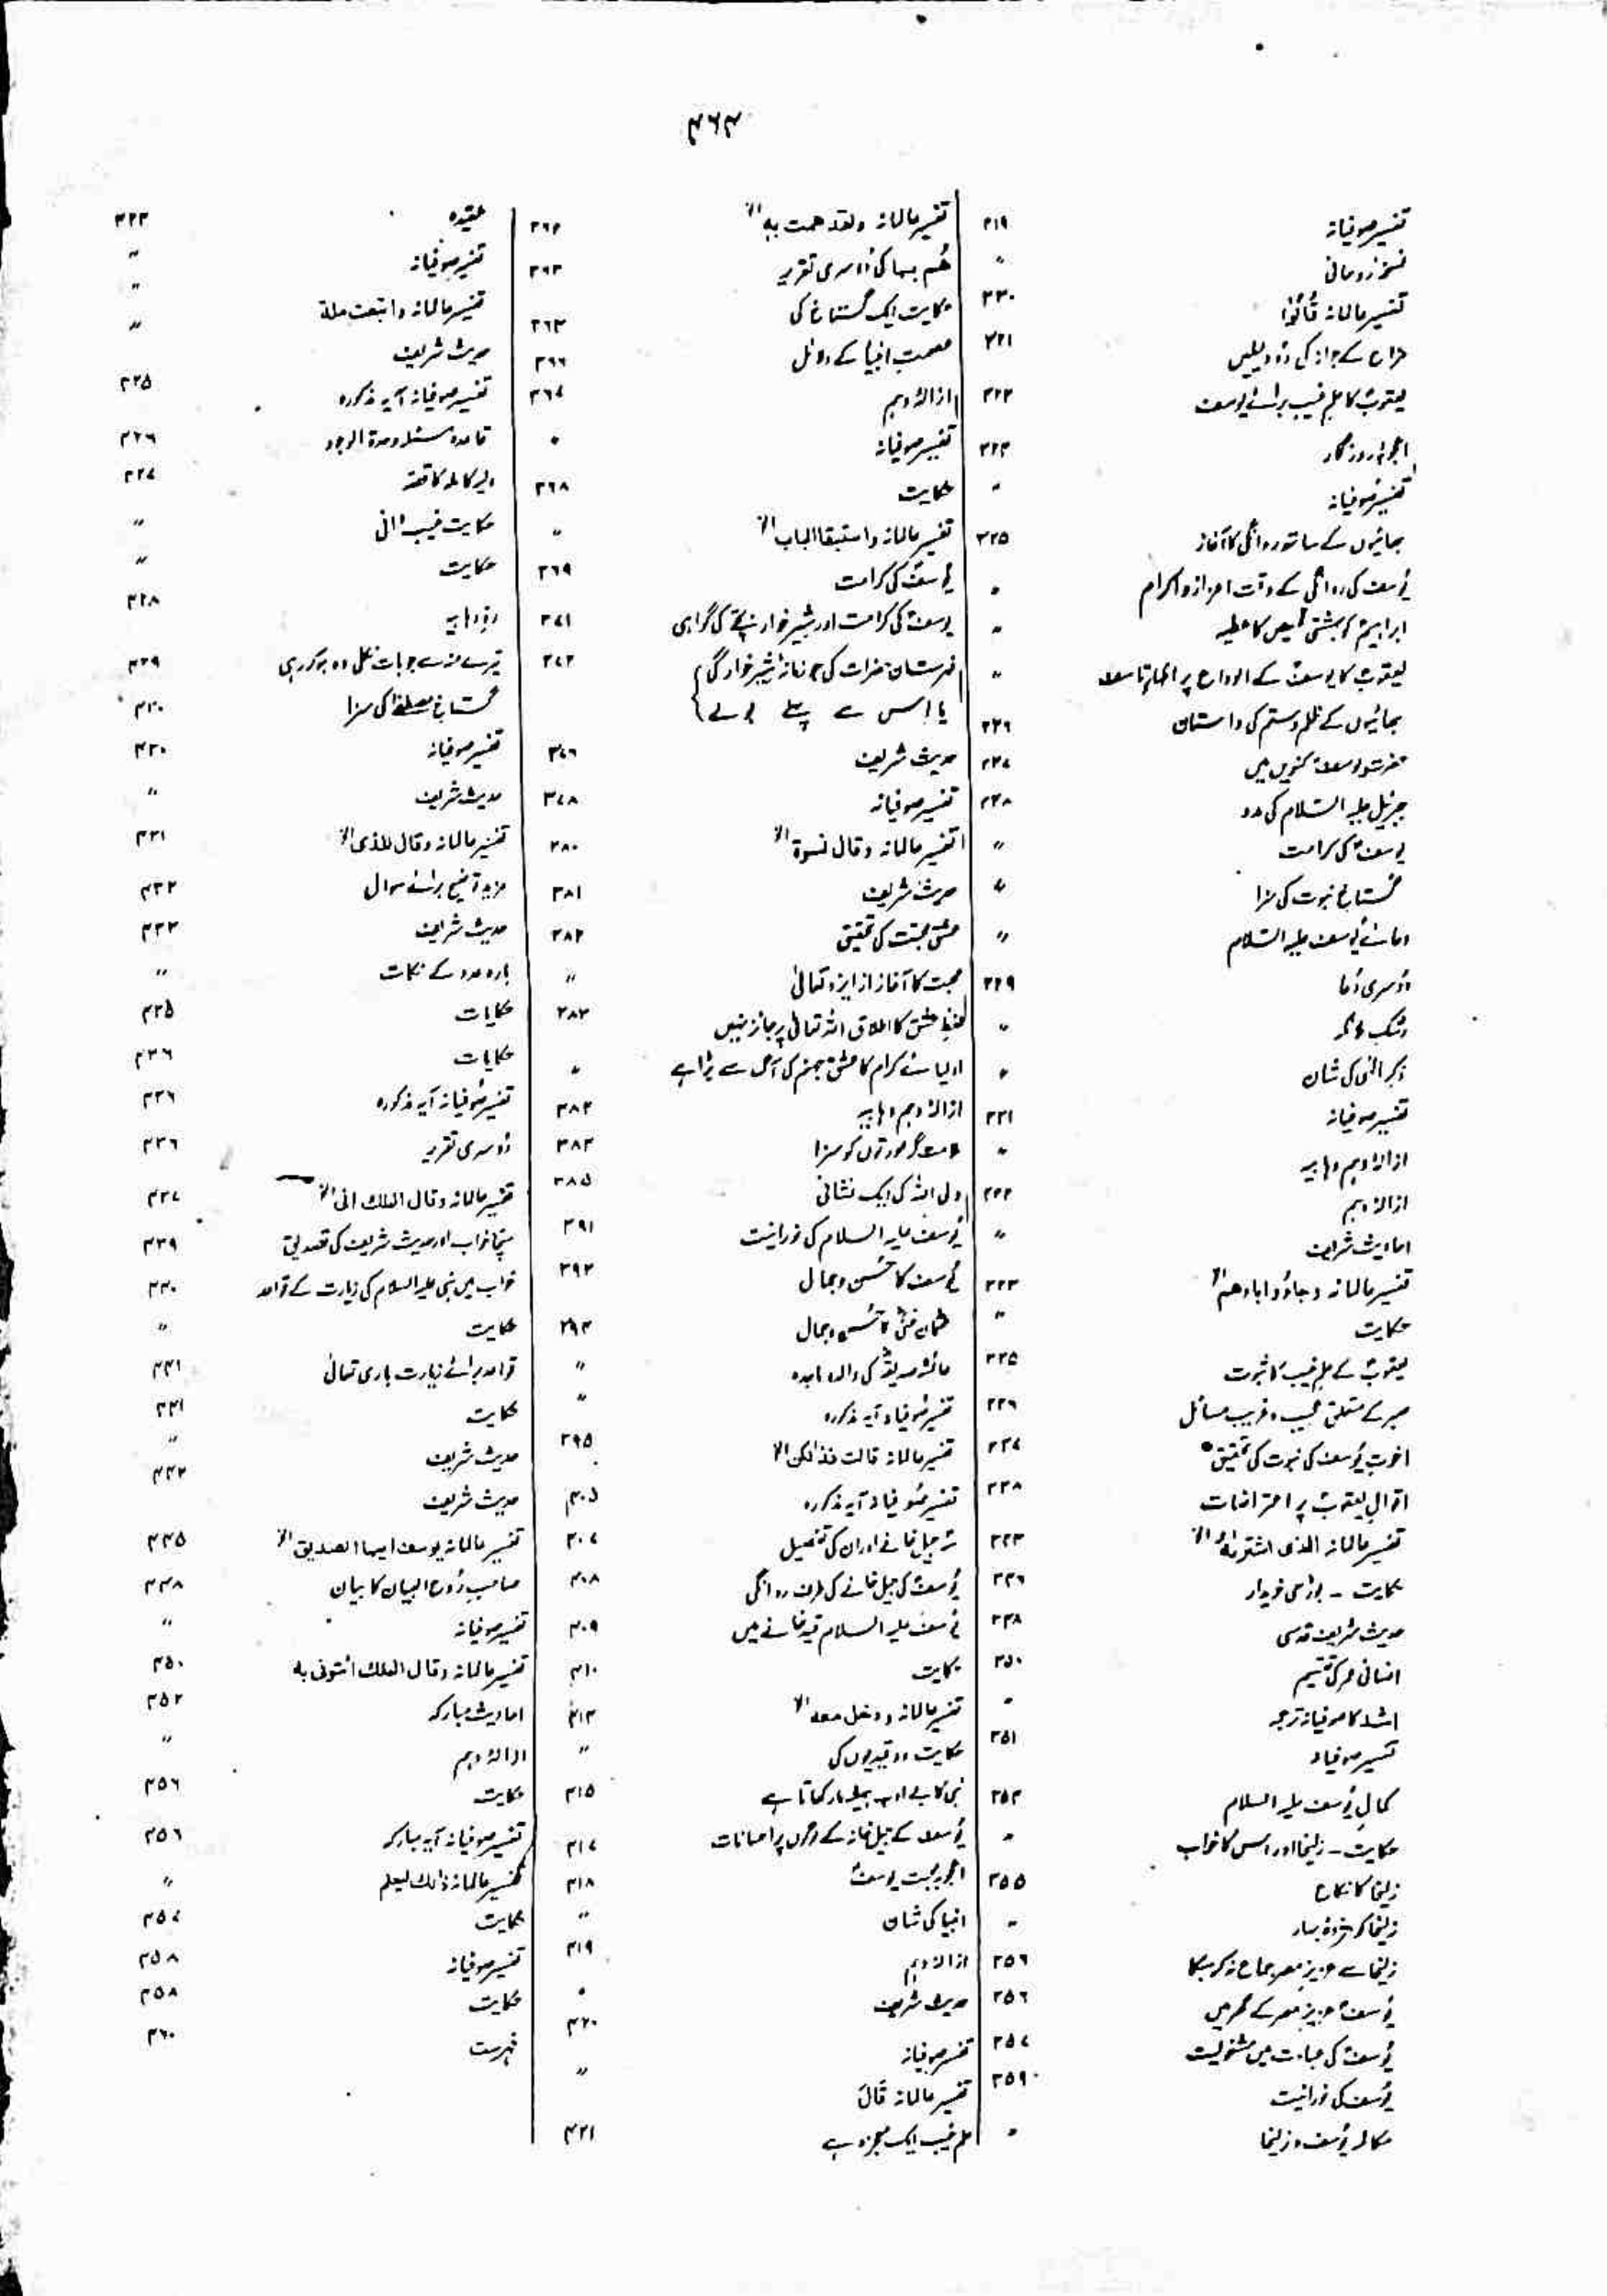 ۴۶۴
تفسیر صوفیانہ ۳۱۹
نسخۂ روحانی 〃
تفسیر عالمانہ قَالُوْا ۳۲۰
مزاح کے جواز کی دو دلیلیں ۳۲۱
یعقوبؑ کا علم غیب برائے یوسف ۳۲۳
اعجوبۂ روزگار ۳۲۴
تفسیر صوفیانہ 〃
بھائیوں کے ساتھ روانگی کا آغاز ۳۲۵
یُوسفؑ کی روانگی کے وقت اعزاز و اکرام 〃
ابراہیمؑ کو بہشتی قمیص کا عطیہ 〃
یعقوبؑ کا یوسفؑ کے الوداع پر اظہارِ تاسف 〃
بھائیوں کے ظلم و ستم کی داستان ۳۲۶
حضرت یوسفؑ کنویں میں ۳۲۷
جبرئیل علیہ السلام کی مدد ۳۲۸
یوسفؑ کی کرامت 〃
گستاخِ نبوت کی سزا 〃
دعائے یُوسف علیہ السّلام 〃
دُوسری دُعا ۳۲۹
〃
ذکرِ الٰہی کی شان 〃
تفسیر صوفیانہ ۳۳۱
ازالۂ وہم وہابیہ 〃
ازالۂ وہم ۳۳۲
احادیث شریف 〃
تفسیر عالمانہ وجاؤُ اباھم الخ ۳۳۳
حکایت 〃
یعقوبؑ کے علمِ غیب کا ثبوت ۳۳۵
صبر کے متعلق عجیب و غریب مسائل ۳۳۶
اخوتِ یُوسف کی نبوت کی تحقیق ۳۳۷
اقوالِ یعقوبؑ پر اعتراضات ۳۳۸
تفسیر عالمانہ الذی اشترٰىہُ الخ ۳۴۴
حکایت - بوڑھی خریدار ۳۴۶
حدیث شریف قدسی ۳۴۸
انسانی عمر کی تقسیم ۳۵۰
اشد کا صوفیانہ ترجمہ 〃
تفسیر صوفیانہ ۳۵۱
کمالِ یُوسف علیہ السلام ۳۵۴
حکایت - زلیخا اور اس کا خواب 〃
زلیخا کا نکاح ۳۵۵
زلیخا کو مژدۂ بہار 〃
زلیخا سے عزیزِ مصر جماع نہ کر سکا ۳۵۶
یُوسفؑ عزیزِ مصر کے گھر میں ۳۵۶
یُوسفؑ کی عبادت میں مشغولیت ۳۵۷
یُوسف کی نورانیت ۳۵۹
مکالمہ یُوسف و زلیخا 〃
تفسیر عالمانہ ولقد ھمت بہٖ الخ ۳۶۲
ھُم بہا کی دُوسری تقریر ۳۶۳
حکایت ایک گستاخ کی ۳۶۴
عصمتِ انبیا کے دلائل ۳۶۶
ازالۂ وہم ۳۶۷
تفسیر صوفیانہ 〃
حکایت ۳۶۸
تفسیر عالمانہ واستبقا الباب الخ 〃
یُوسفؑ کی کرامت ۳۶۹
یوسفؑ کی کرامت اور شیر خوار بچے کی گواہی ۳۷۱
فہرست ان حضرات کی جو زمانۂ شیر خوارگی ۳۷۲
یا اس سے پہلے بولے
حدیث شریف ۳۷۶
تفسیر صوفیانہ ۳۷۸
تفسیر عالمانہ وقال نسوۃ الخ ۳۸۰
حدیث شریف ۳۸۱
عشق محبّت کی تحقیق ۳۸۲
محبت کا آغاز از ایزد تعالیٰ 〃
لفظِ عشق کا اطلاق اللہ تعالیٰ پر جائز نہیں ۳۸۳
اولیائے کرام کا عشق جہنم کی آگ سے بڑا ہے 〃
ازالۂ وہم وہابیہ ۳۸۴
ملامت گر عورتوں کو سزا ۳۸۴
ولی اللہ کی ایک نشانی ۳۸۵
یُوسف علیہ السلام کی نورانیت ۳۹۱
یُوسف کا حُسن و جمال ۳۹۳
عثمان غنیؓ کا حُسن و جمال ۳۹۴
عائشہ صدیقہؓ کی والدہ ماجدہ 〃
تفسیر صُوفیانہ آیہ مذکورہ 〃
تفسیر عالمانہ قالت فذٰلکن الخ ۳۹۵
تفسیر صُوفیانہ آیہ مذکورہ ۴۰۵
جیل خانے اور ان کی تفصیل ۴۰۷
یُوسفؑ کی جیل خانے کی طرف روانگی ۴۰۸
یُوسف علیہ السلام قید خانے میں ۴۰۹
حکایت ۴۱۰
تفسیر عالمانہ ودخل معہ الخ ۴۱۳
حکایت دو قیدیوں کی 〃
نبی کا بے ادب ہمیشہ مار کھاتا ہے ۴۱۵
یُوسفؑ کے جیل خانہ کے لوگوں پر احسانات ۴۱۷
اعجوبۂ محبت یوسفؑ ۴۱۸
انبیا کی شان 〃
ازالۂ وہم ۴۱۹
حدیث شریف 〃
تفسیر صوفیانہ ۴۲۰
تفسیر عالمانہ قَالَ 〃
علم غیب ایک معجزہ ہے ۴۲۱
عقیدہ ۴۲۳
تفسیر صوفیانہ 〃
تفسیر عالمانہ واتبعت ملۃ 〃
حدیث شریف 〃
تفسیر صوفیانہ آیہ مذکورہ ۴۲۵
قاعدہ مسئلہ وحدۃ الوجود ۴۲۶
ولیہ کاملہ کا قصّہ ۴۲۷
حکایت غیب دانی 〃
حکایت 〃
ردِّ وہابیہ ۴۲۸
تیرے منہ سے جو بات نکلی وہ ہو کر رہی ۴۲۹
گستاخِ مصطفیٰ کی سزا ۴۳۰
تفسیر صوفیانہ ۴۳۰
حدیث شریف 〃
تفسیر عالمانہ وقال للذی الخ ۴۳۱
مزید توضیح برائے سوال ۴۳۲
حدیث شریف ۴۳۳
بارہ عدد کے نکات 〃
حکایات ۴۳۵
حکایات ۴۳۶
تفسیر صُوفیانہ آیہ مذکورہ ۴۳۶
دُوسری تقریر ۴۳۶
تفسیر عالمانہ وقال الملک انی الخ ۴۳۷
سچا خواب اور حدیث شریف کی تصدیق ۴۳۹
خواب میں نبی علیہ السلام کی زیارت کے قواعد ۴۴۰
حکایت 〃
قواعد برائے زیارت باری تعالیٰ ۴۴۱
حکایت ۴۴۱
حدیث شریف 〃
حدیث شریف ۴۴۲
تفسیر عالمانہ یوسف ایھا الصدیق الخ ۴۴۵
صاحبِ رُوح البیان کا بیان ۴۴۸
تفسیر صوفیانہ 〃
تفسیر عالمانہ وقال الملک ائتونی بہ ۴۵۰
احادیث مبارکہ ۴۵۲
ازالۂ وہم 〃
حکایت ۴۵۶
تفسیر صوفیانہ آیہ مبارکہ ۴۵۶
تفسیر عالمانہ ذالک لیعلم 〃
حکایت ۴۵۷
تفسیر صوفیانہ ۴۵۸
حکایت ۴۵۸
فہرست ۴۶۰